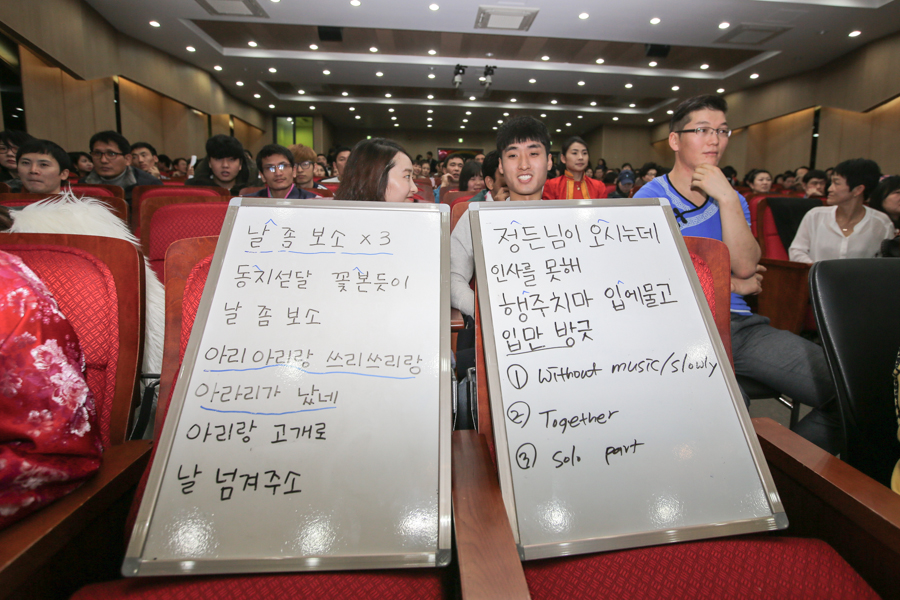 날 좀 보소 x 3
동지섣달 꽃본듯이
날 좀 보소
아리아리랑 쓰리쓰리랑
아라리가 났네
아리랑 고개로
날 넘겨주소
정든님이 오시는데
인사를 못해
행주치마 입에물고
입만 방긋
① without music/slowly
② Together
③ solo part